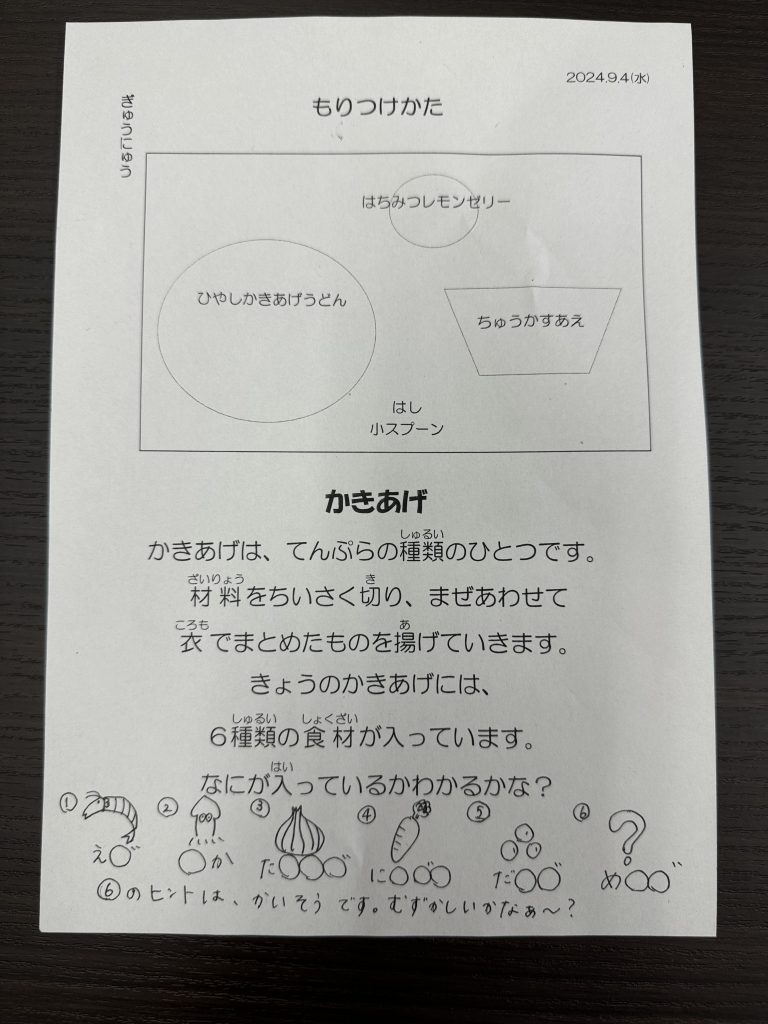 2024.9.4(水)
もりつけかた
ぎゅうにゅう
はちみつレモンゼリー
ひやしかきあげうどん
ちゅうかすあえ
はし
小スプーン
かきあげ
しゅるい
かきあげは、てんぷらの種類のひとつです。
ざいりょう き
材料をちいさく切り、まぜあわせて
ころも あ
衣でまとめたものを揚げていきます。
きょうのかきあげには、
しゅるい しょくざい
6種類の食材が入っています。
はい
なにが入っているかわかるかな?
① ② ③ ④ ⑤ ⑥
え○゛ ○か た○○○゛ に○○゛○ だ○○゛ め○○゛
⑥のヒントは、かいそうです。むずかしいかなぁ~?